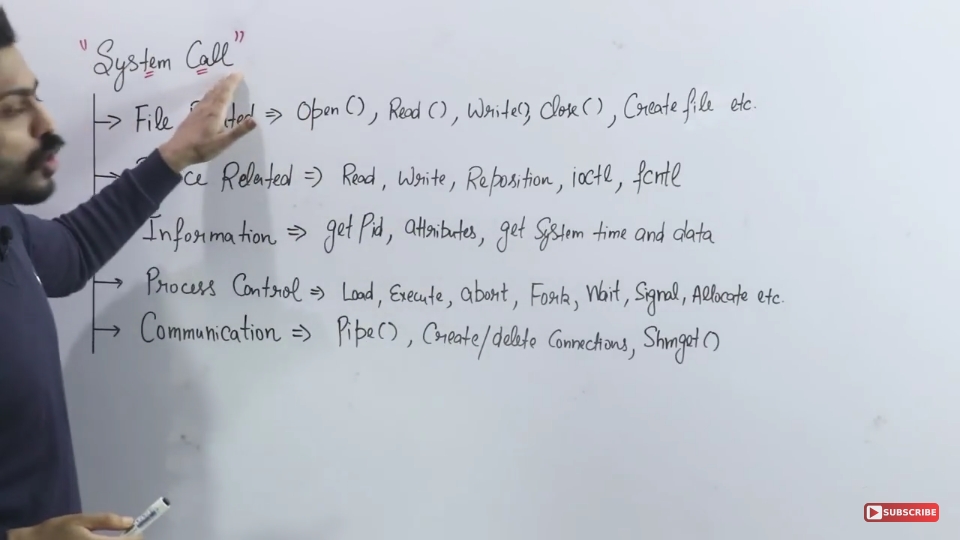 "System Call"
File ⇒ Open(), Read(), Write(), Close(), Create file etc.
Related ⇒ Read, Write, Reposition, ioctl, fcntl
Information ⇒ get Pid, attributes, get System time and data
Process Control ⇒ Load, Execute, abort, Fork, Wait, Signal, Allocate etc.
Communication ⇒ Pipe(), Create/delete Connections, Shmget()
SUBSCRIBE